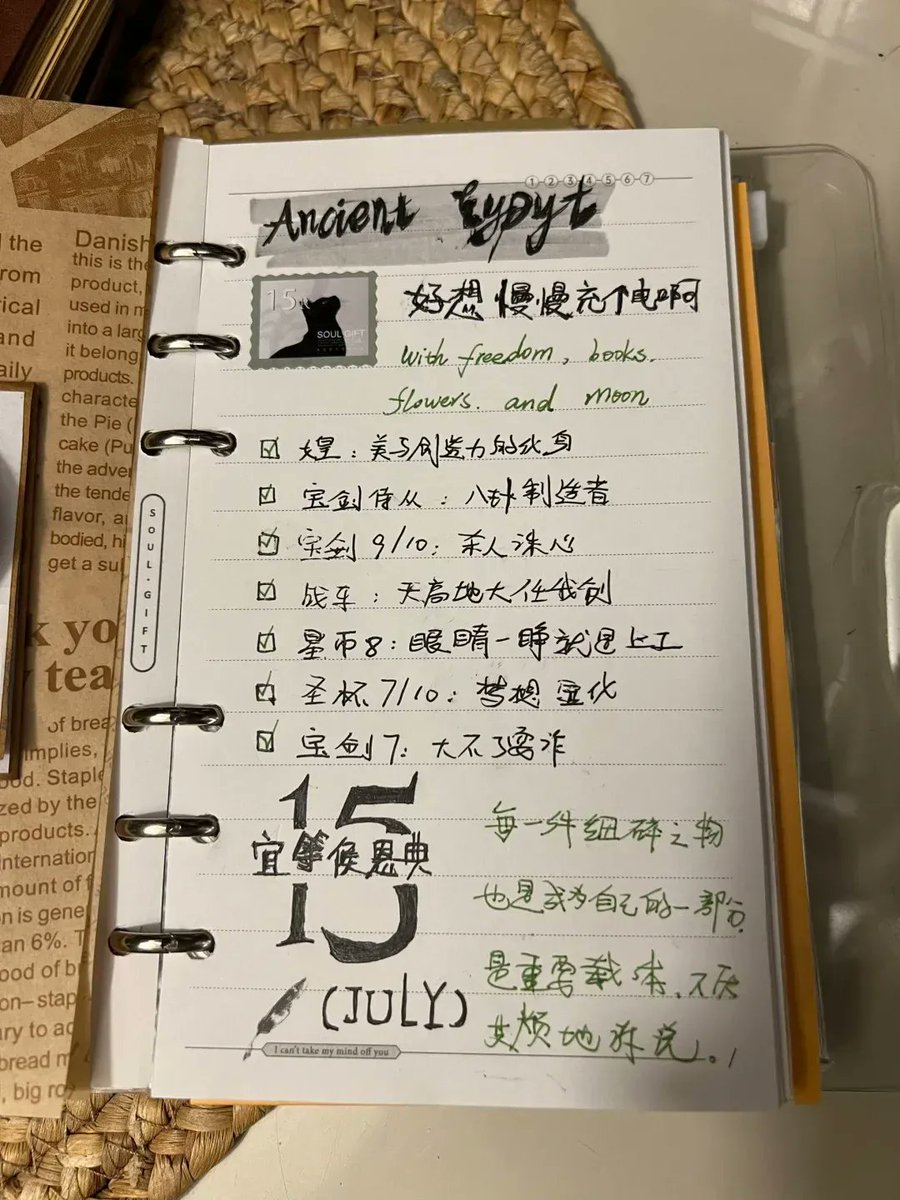 the
Danish
from
this is the
product,
rical
used in m
and
into a larg
it belong
aily
products.
characte
the Pie (
cake (Pu
the adver
the tende
flavor, a
bodied, hi
get a sul
k yo
y tea
of brea
implies,
ood. Staple
zed by the
products.
internation
mount of f
on is gene
an 6%. T
ood of b
on– stap
ary to ac
bread m
, big ro
SOUL·GIFT
①②③④⑤⑥⑦
Ancient Eypyt
15
SOUL GIFT
好想慢慢充个电啊
with freedom, books.
flowers. and moon
☑ 女皇：美与创造力的化身
☑ 宝剑侍从：八卦制造者
☑ 宝剑9/10：杀人诛心
☑ 战车：天高地大任我创
☑ 星币8：眼睛一睁就是上工
☑ 圣杯7/10：梦想 化
☑ 宝剑7：大不了要诈
15
宜等候恩典
(JULY)
I can't take my mind off you
每一件细碎之物
也是成为自己的一部分
是重要载体，不厌
其烦地诉说。